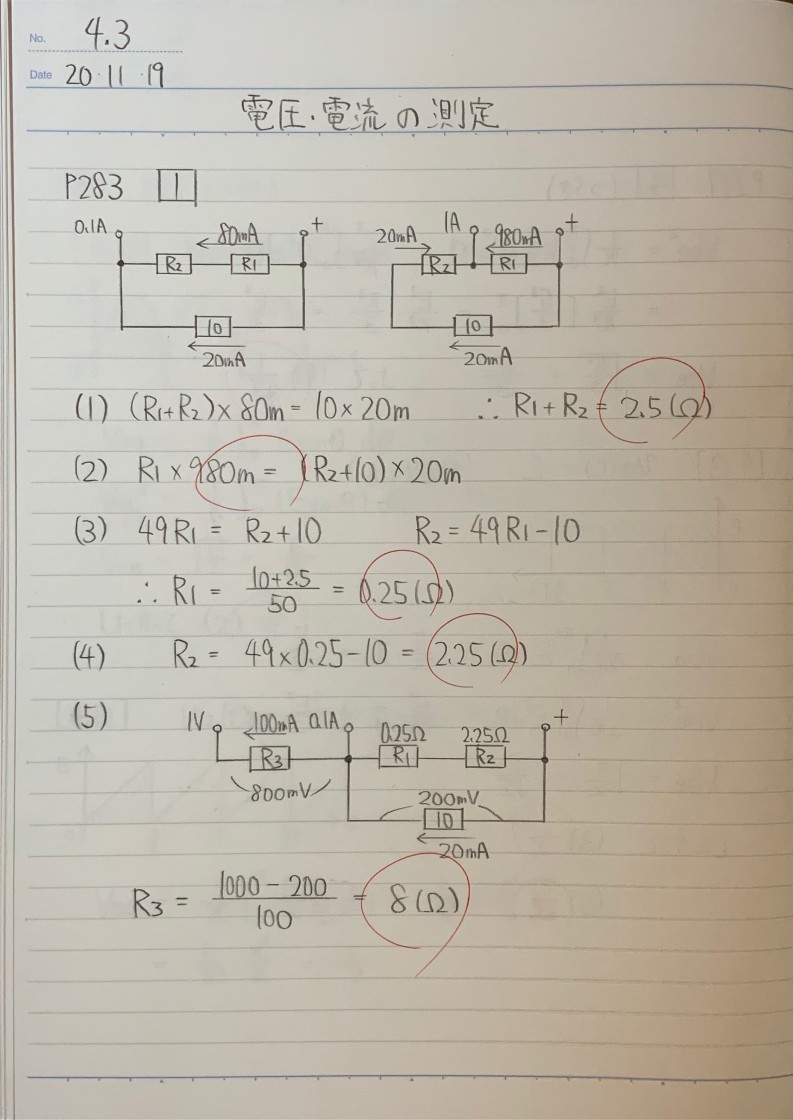 No. 4.3
Date 20・11・19
電圧・電流の測定
P283 1
0.1A 80mA + 20mA 1A 980mA +
R2 R1 R2 R1
10 10
20mA 20mA
(1) (R1+R2)×80m = 10×20m ∴ R1+R2 = 2.5(Ω)
(2) R1×980m = (R2+10)×20m
(3) 49R1 = R2+10 R2 = 49R1-10
∴ R1 = 10+2.5 / 50 = 0.25(Ω)
(4) R2 = 49×0.25-10 = 2.25(Ω)
(5) 1V 100mA 0.1A 0.25Ω 2.25Ω +
R3 R1 R2
800mV 200mV
10
20mA
R3 = 1000-200 / 100 = 8(Ω)